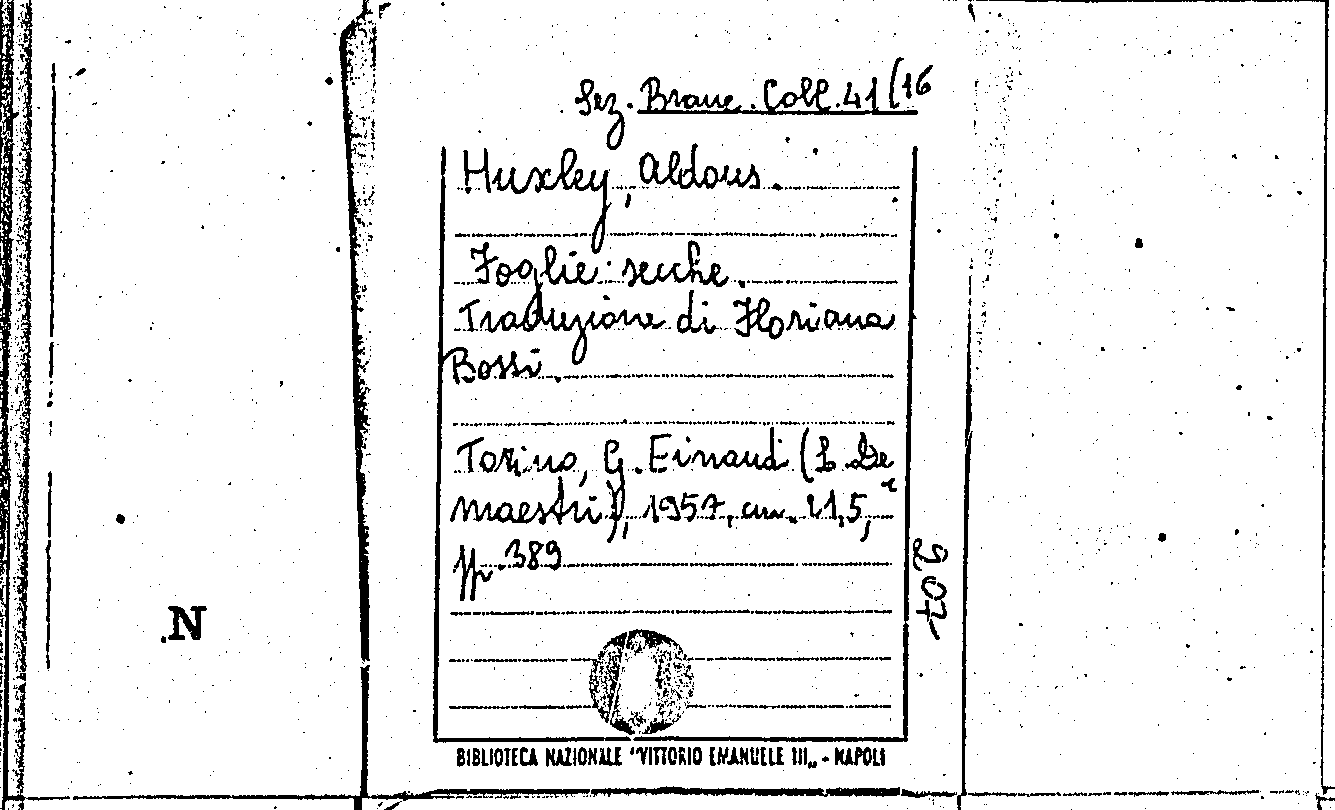 Sez. Branc. Coll. 41 (16
Huxley, Aldous.
Foglie secche.
Traduzione di Floriana
Bossi.
Torino, G. Einaudi (L. De
maestri), 1957, cm. 21,5,
pp. 389
207
N
BIBLIOTECA NAZIONALE "VITTORIO EMANUELE III„ - NAPOLI